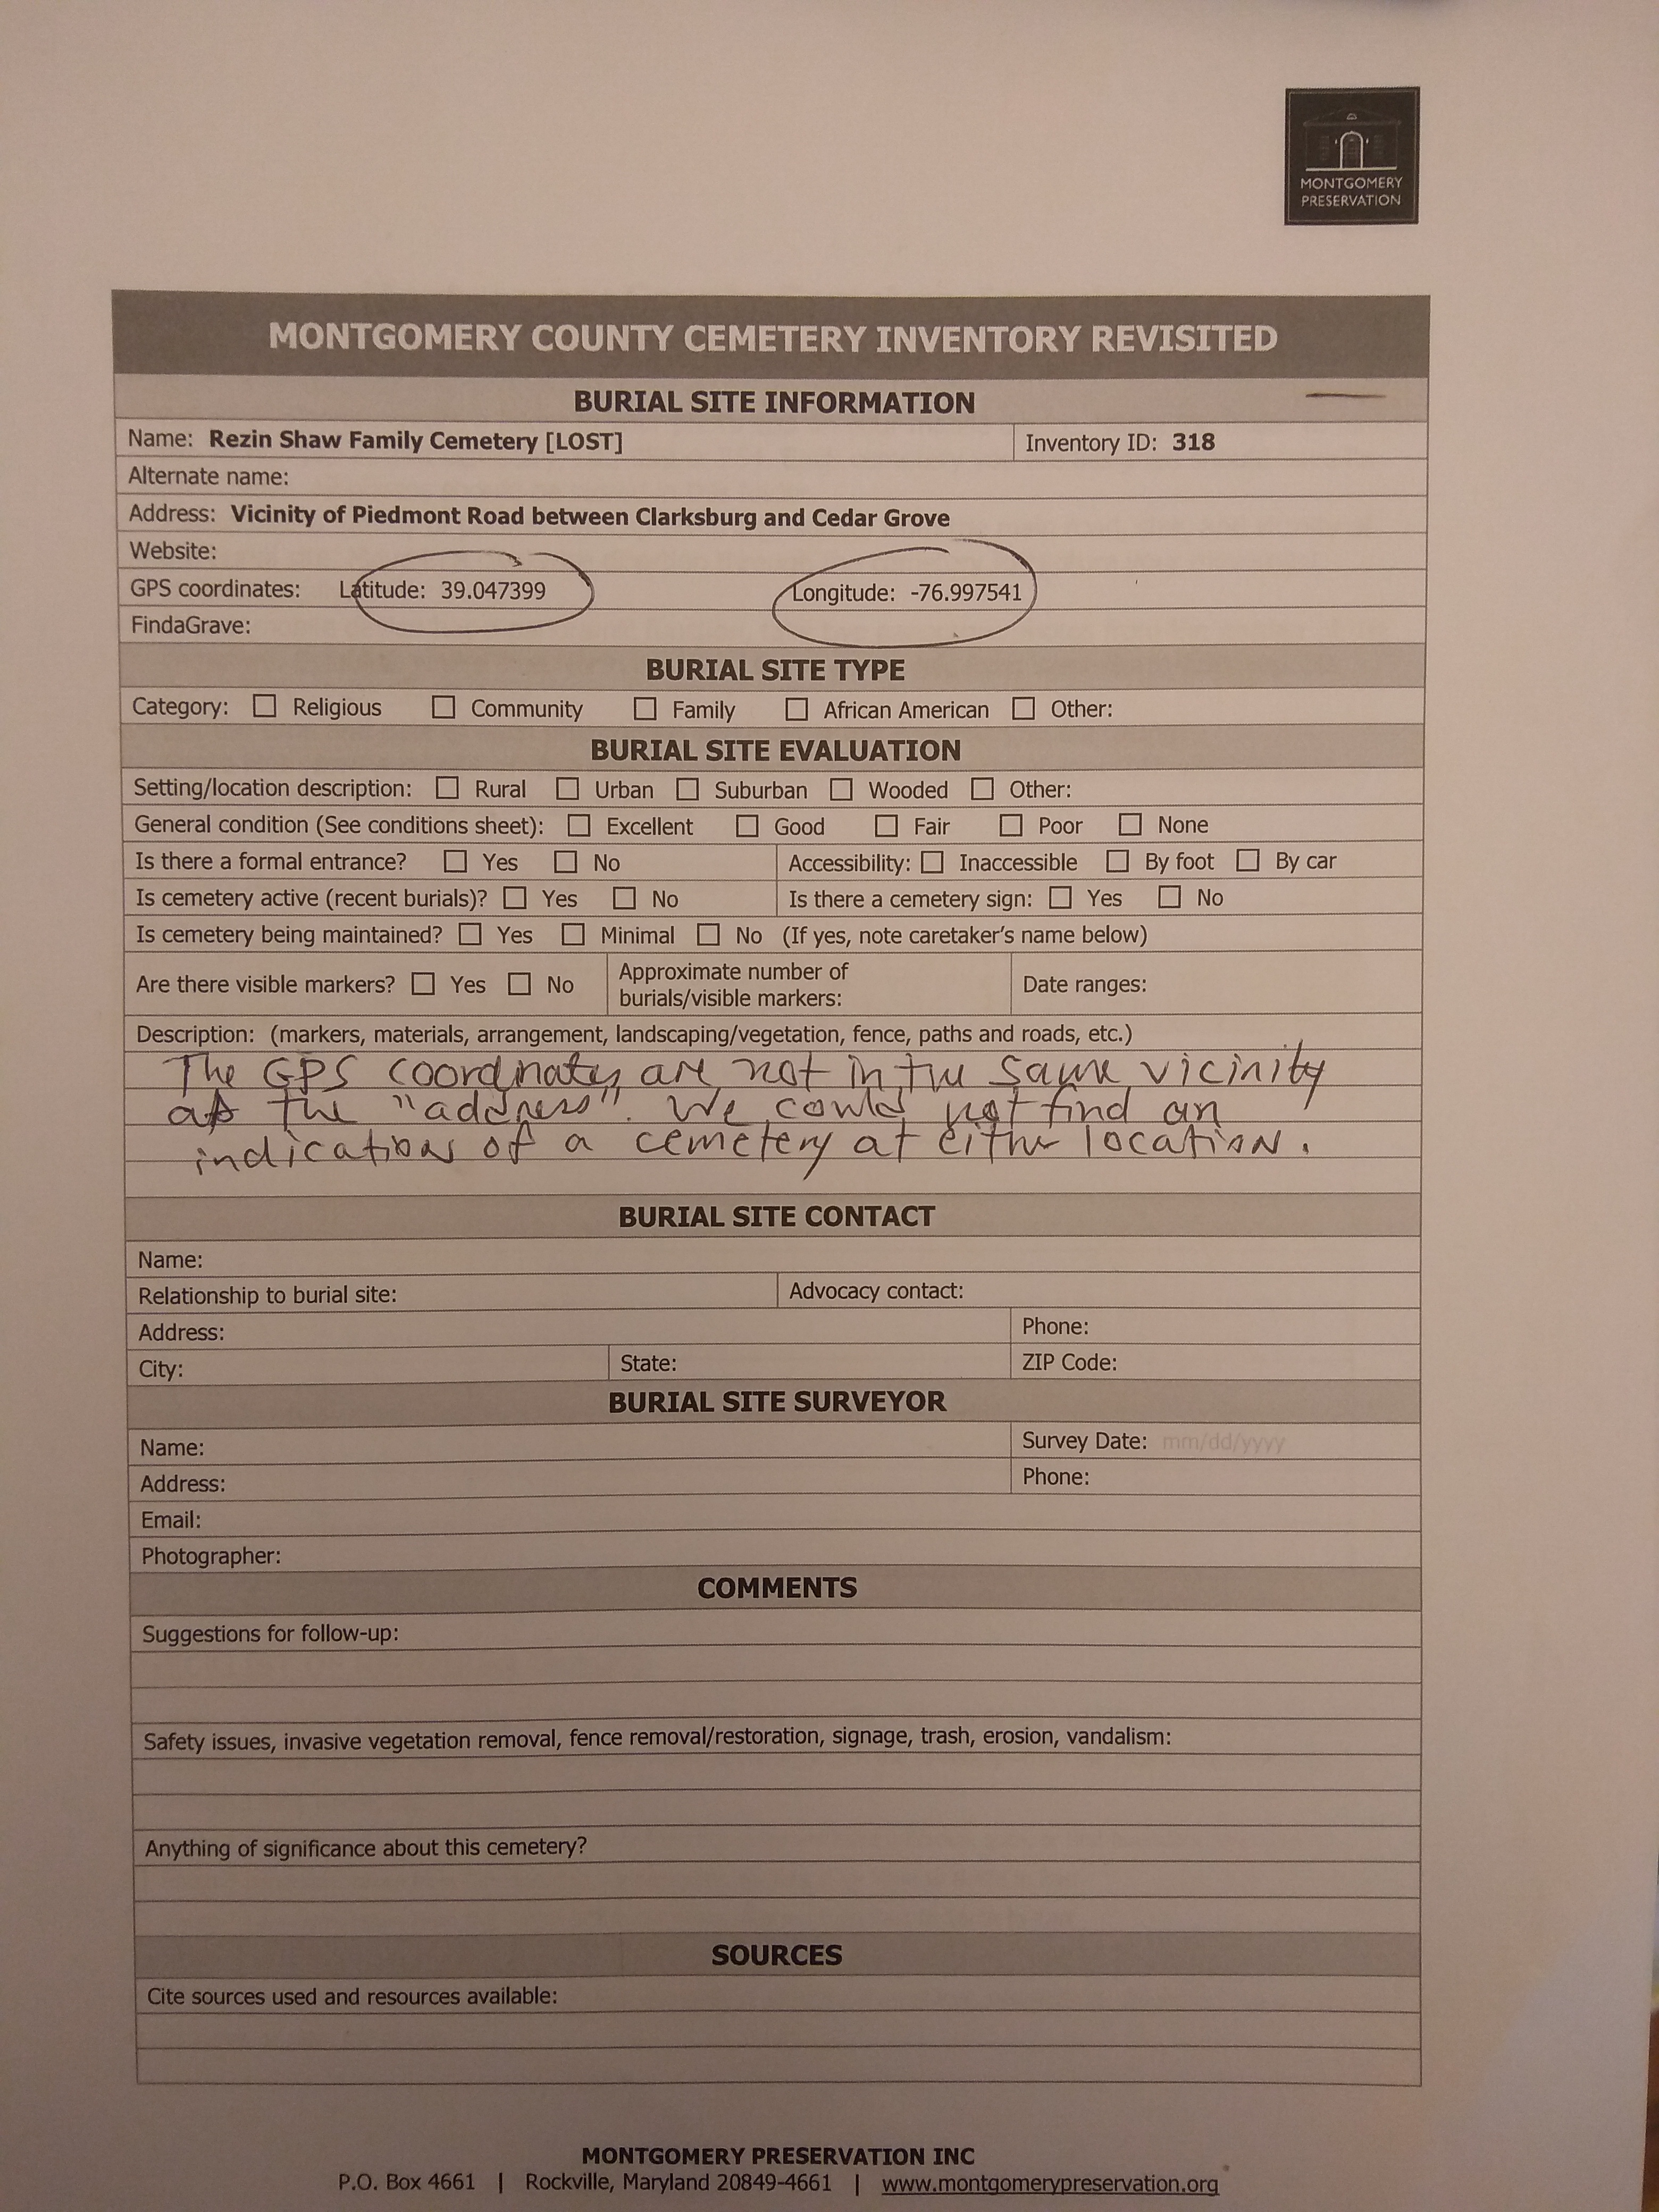 MONTGOMERY
PRESERVATION
MONTGOMERY COUNTY CEMETERY INVENTORY REVISITED
BURIAL SITE INFORMATION
Name: Rezin Shaw Family Cemetery [LOST] Inventory ID: 318
Alternate name:
Address: Vicinity of Piedmont Road between Clarksburg and Cedar Grove
Website:
GPS coordinates: Latitude: 39.047399 Longitude: -76.997541
FindaGrave:
BURIAL SITE TYPE
Category: ☐ Religious ☐ Community ☐ Family ☐ African American ☐ Other:
BURIAL SITE EVALUATION
Setting/location description: ☐ Rural ☐ Urban ☐ Suburban ☐ Wooded ☐ Other:
General condition (See conditions sheet): ☐ Excellent ☐ Good ☐ Fair ☐ Poor ☐ None
Is there a formal entrance? ☐ Yes ☐ No Accessibility: ☐ Inaccessible ☐ By foot ☐ By car
Is cemetery active (recent burials)? ☐ Yes ☐ No Is there a cemetery sign: ☐ Yes ☐ No
Is cemetery being maintained? ☐ Yes ☐ Minimal ☐ No (If yes, note caretaker's name below)
Are there visible markers? ☐ Yes ☐ No Approximate number of
burials/visible markers: Date ranges:
Description: (markers, materials, arrangement, landscaping/vegetation, fence, paths and roads, etc.)
The GPS coordinates are not in the same vicinity
as the "address". We could not find an
indication of a cemetery at either location.
BURIAL SITE CONTACT
Name:
Relationship to burial site: Advocacy contact:
Address: Phone:
City: State: ZIP Code:
BURIAL SITE SURVEYOR
Name: Survey Date: mm/dd/yyyy
Address: Phone:
Email:
Photographer:
COMMENTS
Suggestions for follow-up:
Safety issues, invasive vegetation removal, fence removal/restoration, signage, trash, erosion, vandalism:
Anything of significance about this cemetery?
SOURCES
Cite sources used and resources available:
MONTGOMERY PRESERVATION INC
P.O. Box 4661 | Rockville, Maryland 20849-4661 | www.montgomerypreservation.org